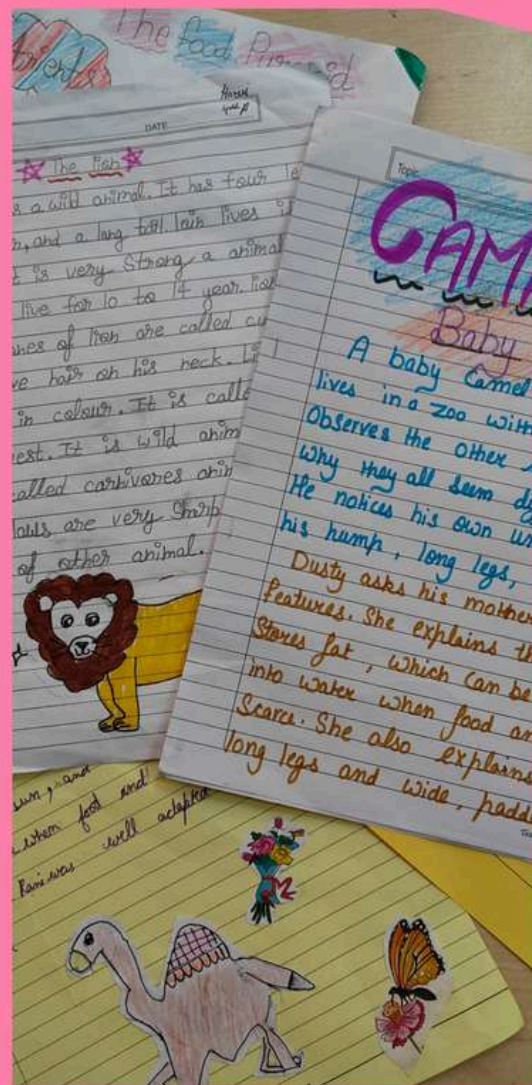 The Food Pyramid
DATE
The lion
s a wild animal. It has four le
, and a long tail lain lives i
t is very Strong a animal
live for 10 to 14 year. lio
ones of lion are called cu
ve hair on his neck. Li
in colour. It is calle
est. It is wild anim
alled carbivores anim
laws are very Sharp
of other animal.
Topic
CAM
Baby
A baby Camel
lives in a zoo with
Observes the other
why they all seem dif
He notices his own un
his hump, long legs,
Dusty asks his mother
features. She explains th
Stores fat, which can be
into water when food an
Scarce. She also explain
long legs and wide, padd
sun, and
when foot and
Rani was well adapted